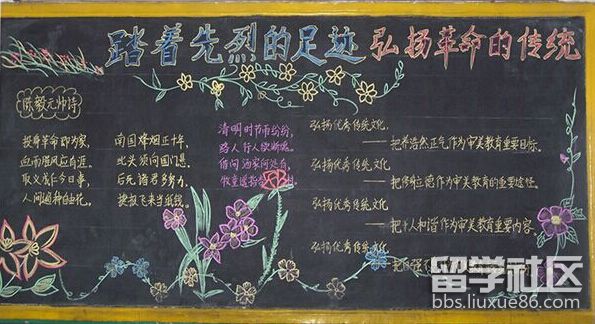 踏着先烈的足迹 弘扬革命的传统
陈毅元帅诗
投身革命即为家,
血雨腥风应有涯
取义成仁今日事,
人间遍种自由花。
南国烽烟正十年,
此头须向国门悬
后死诸君多努力,
捷报飞来当纸钱。
清明时节雨纷纷,
路人行人欲断魂
借问酒家何处有
牧童遥指
弘扬优秀传统文化,
——把养浩然正气作为审美教育重要目标。
弘扬优秀传统文化
——把作为审美教育的重要途径。
弘扬优秀传统文化
——把个人和谐作为审美教育重要内容。
弘扬优秀传统文化
——把自强
留学社区
bbs.liuxue86.com